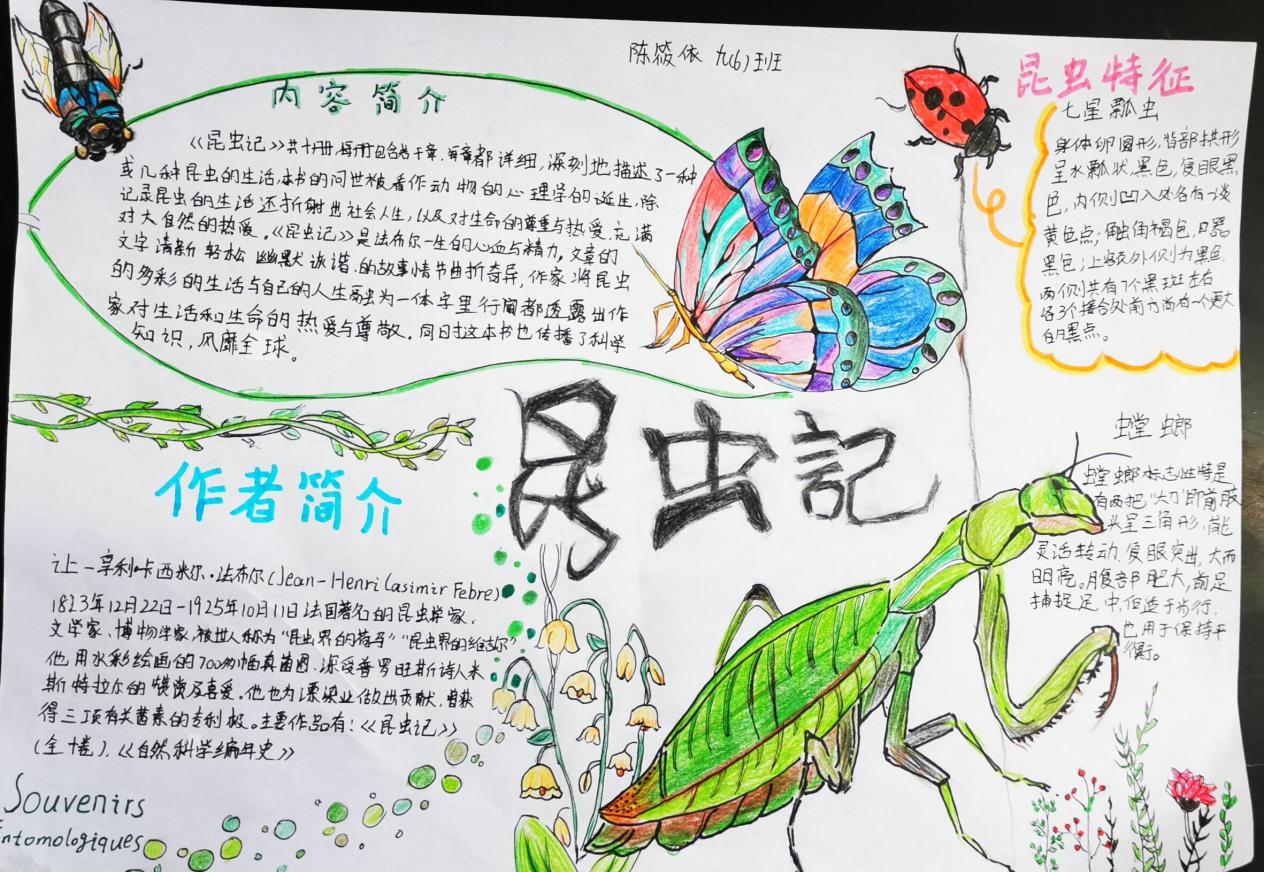 陈筱依 九(6)班
内容简介
《昆虫记》共十册,每册包含若干章,每章都详细,深刻地描述了一种
或几种昆虫的生活,本书的问世被看作动物的心理学的诞生,除
记录昆虫的生活还折射出社会人生,以及对生命的尊重与热爱,充满
对大自然的热爱。《昆虫记》是法布尔一生的心血与精力,文章的
文字清新轻松幽默诙谐,的故事情节曲折奇异,作家将昆虫
的多彩的生活与自己的人生融为一体字里行间都透露出作
家对生活和生命的热爱与尊敬。同时这本书也传播了科学
知识,风靡全球。
昆虫特征
七星瓢虫
身体卵圆形,背部拱形
呈水瓢状,黑色,复眼黑
色,内侧凹入处各有一淡
黄色点;触角褐色,口器
黑色;上颚外侧为黑色,
两侧共有7个黑斑左右
各3个接合处前方尚有一个更大
的黑点。
昆虫記
作者简介
让-亨利·卡西米尔·法布尔(Jean-Henri Casimir Febre)
1823年12月22日-1925年10月11日法国著名的昆虫学家,
文学家、博物学家,被世人称为“昆虫界的荷马”“昆虫界的维吉尔”
他用水彩绘画的700多幅真菌图,深受普罗旺斯诗人米
斯特拉尔的赞赏及喜爱。他也为漂染业做出贡献,曾获
得三项有关茜素的专利权。主要作品有:《昆虫记》
(全十卷),《自然科学编年史》
Souvenirs
Entomologiques
螳螂
螳螂标志性特是
有两把“大刀”即前肢
头呈三角形,能
灵活转动,复眼突出,大而
明亮。腹部肥大,前足
捕捉足,中,但适于步行,
也用于保持平
衡。